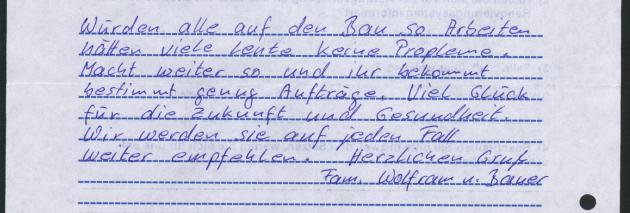 Würden alle auf den Bau so Arbeiten
hätten viele Leute keine Probleme.
Macht weiter so und ihr bekommt
bestimmt genug Aufträge. Viel Glück
für die Zukunft und Gesundheit.
Wir werden sie auf jeden Fall
weiter empfehlen. Herzlichen Gruß
Fam. Wolfram u. Bauer